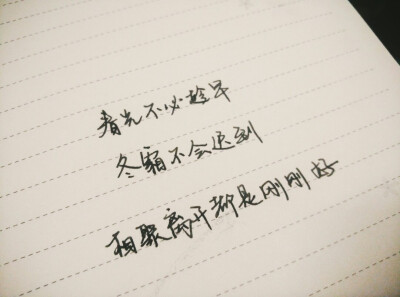 春光不必趁早
冬霜不会迟到
相聚离开都是刚刚好